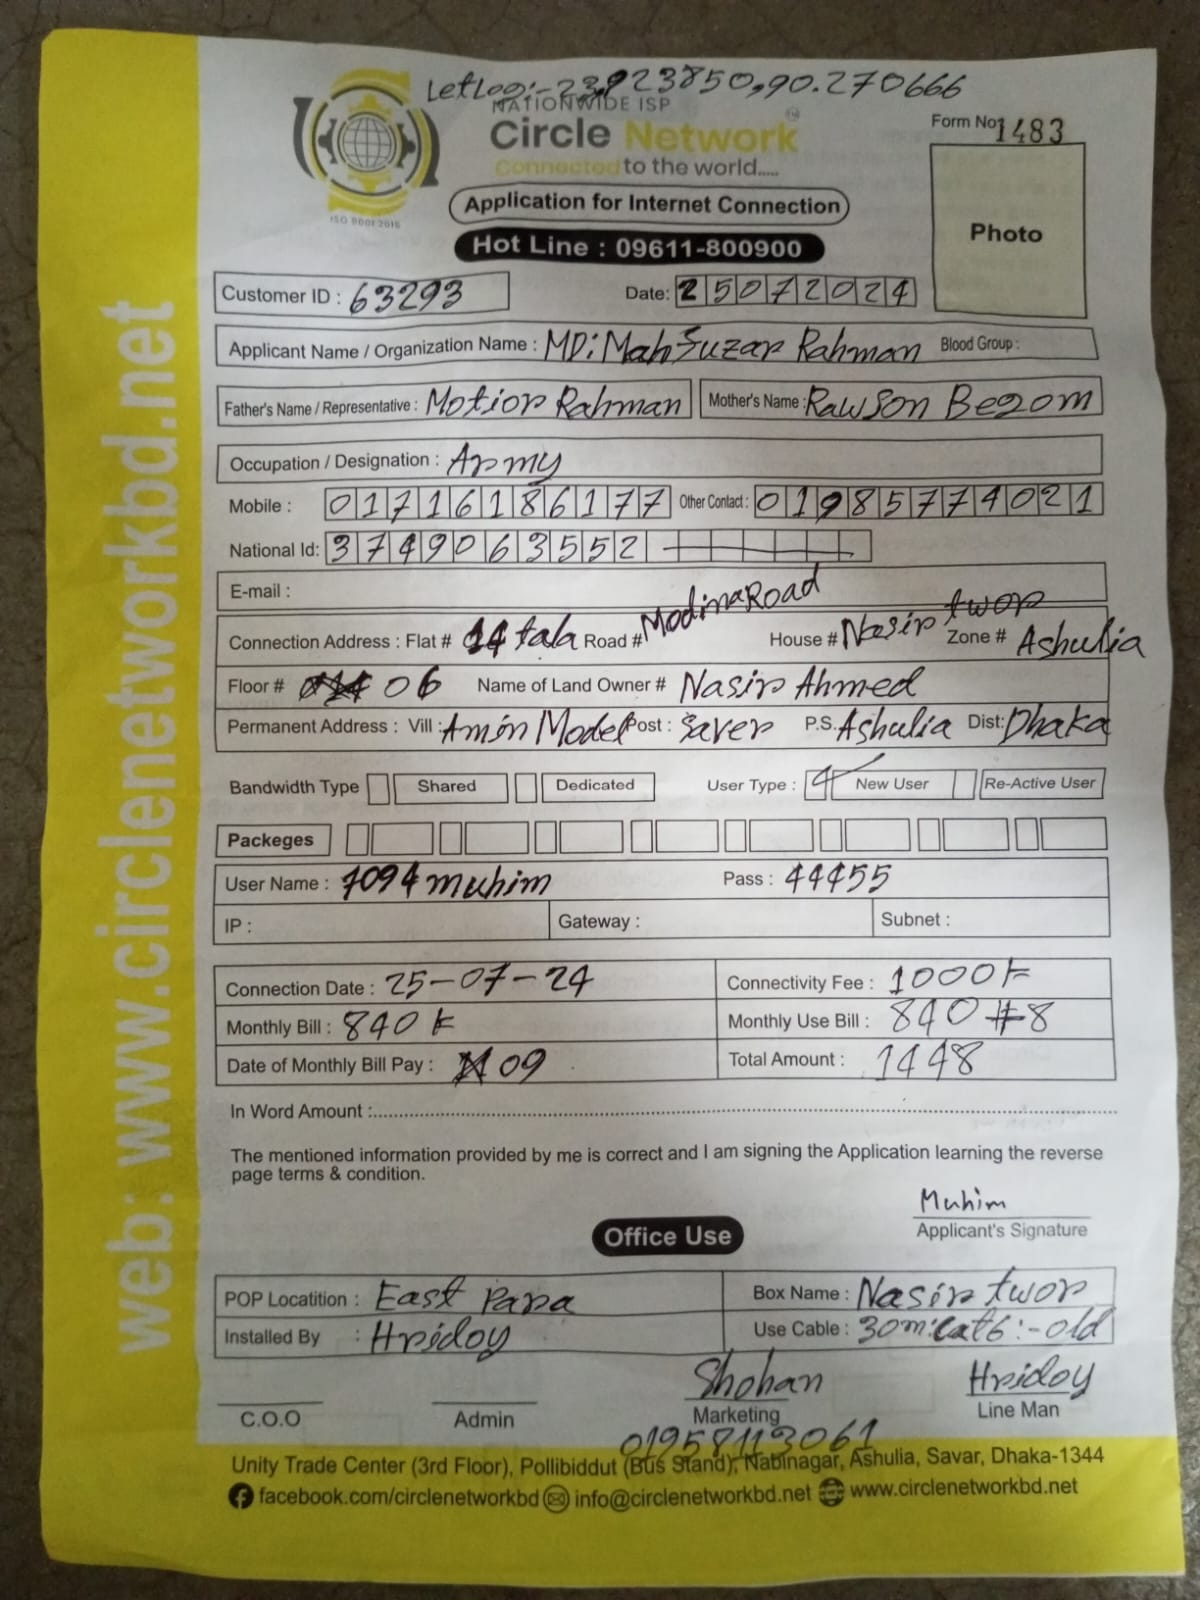 LetLog:-23.923850,90.270666
NATIONWIDE ISP
Circle Network
Connected to the world.....
ISO 9001:2015
Form No: 1483
Application for Internet Connection
Photo
Hot Line : 09611-800900
Customer ID : 63293 Date: 25072024
Applicant Name / Organization Name : MD: Mahfuzar Rahman Blood Group :
Father's Name / Representative : Motior Rahman Mother's Name : Rawson Begom
Occupation / Designation : Army
Mobile : 01716186177 Other Contact : 01985774021
National Id: 3749063552
E-mail :
Connection Address : Flat # 14 tala Road # Modina Road House # Nasir twor Zone # Ashulia
Floor # 06 Name of Land Owner # Nasir Ahmed
Permanent Address : Vill : Amin Model Post : Saver P.S. Ashulia Dist: Dhaka
Bandwidth Type Shared Dedicated User Type : New User Re-Active User
Packeges
User Name : 7094muhim Pass : 44455
IP : Gateway : Subnet :
Connection Date : 25-07-24 Connectivity Fee : 1000
Monthly Bill : 840 Monthly Use Bill : 840
Date of Monthly Bill Pay : 09 Total Amount : 1448
In Word Amount :
The mentioned information provided by me is correct and I am signing the Application learning the reverse
page terms & condition.
Muhim
Applicant's Signature
Office Use
POP Locatition : East Para Box Name : Nasir twor
Installed By : Hridoy Use Cable : 30m: cat6 :- old
Shohan Hridoy
C.O.O Admin Marketing Line Man
01958113061
Unity Trade Center (3rd Floor), Pollibiddut (Bus Stand), Nabinagar, Ashulia, Savar, Dhaka-1344
facebook.com/circlenetworkbd info@circlenetworkbd.net www.circlenetworkbd.net
web: www.circlenetworkbd.net